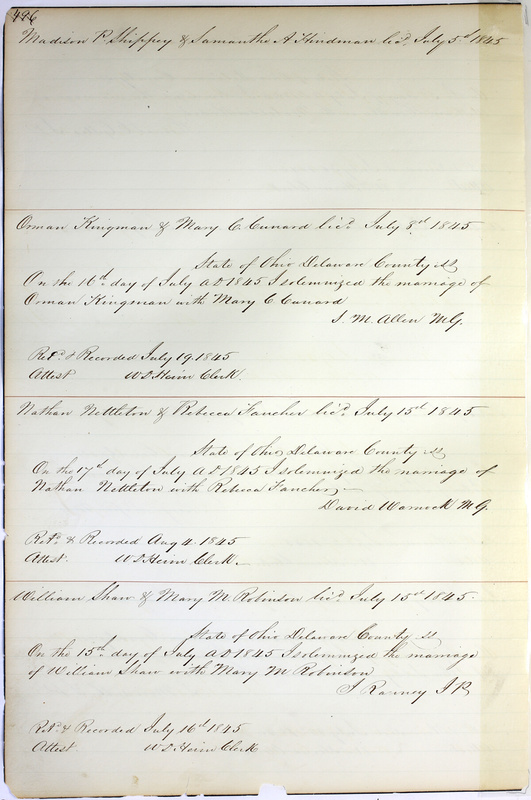 496
Madison P. Shippey & Samantha A Hindman lic.d July 5th 1845
Orman Kingman & Mary C. Cunard lic.d July 8th 1845
State of Ohio Delaware County ss
On the 16th day of July A D 1845 I solemnized the marriage of
Orman Kingman with Mary C Cunard
J. M. Allen M.G.
Ret.d & Recorded July 19. 1845
Attest W D Heim Clerk.
Nathan Nettleton & Rebecca Fancher lic.d July 15th 1845
State of Ohio Delaware County ss
On the 17th day of July A D 1845 I solemnized the marriage of
Nathan Nettleton with Rebecca Fancher,
David Warnock M.G.
Ret.d & Recorded Aug 4. 1845
Attest. W D Heim Clerk.
William Shaw & Mary M. Robinson lic.d July 15th 1845.
State of Ohio Delaware County ss
On the 15th day of July A D 1845 I solemnized the marriage
of William Shaw with Mary M Robinson
J Ramey J P.
Ret.d & Recorded July 16th 1845
Attest W D Heim Clerk